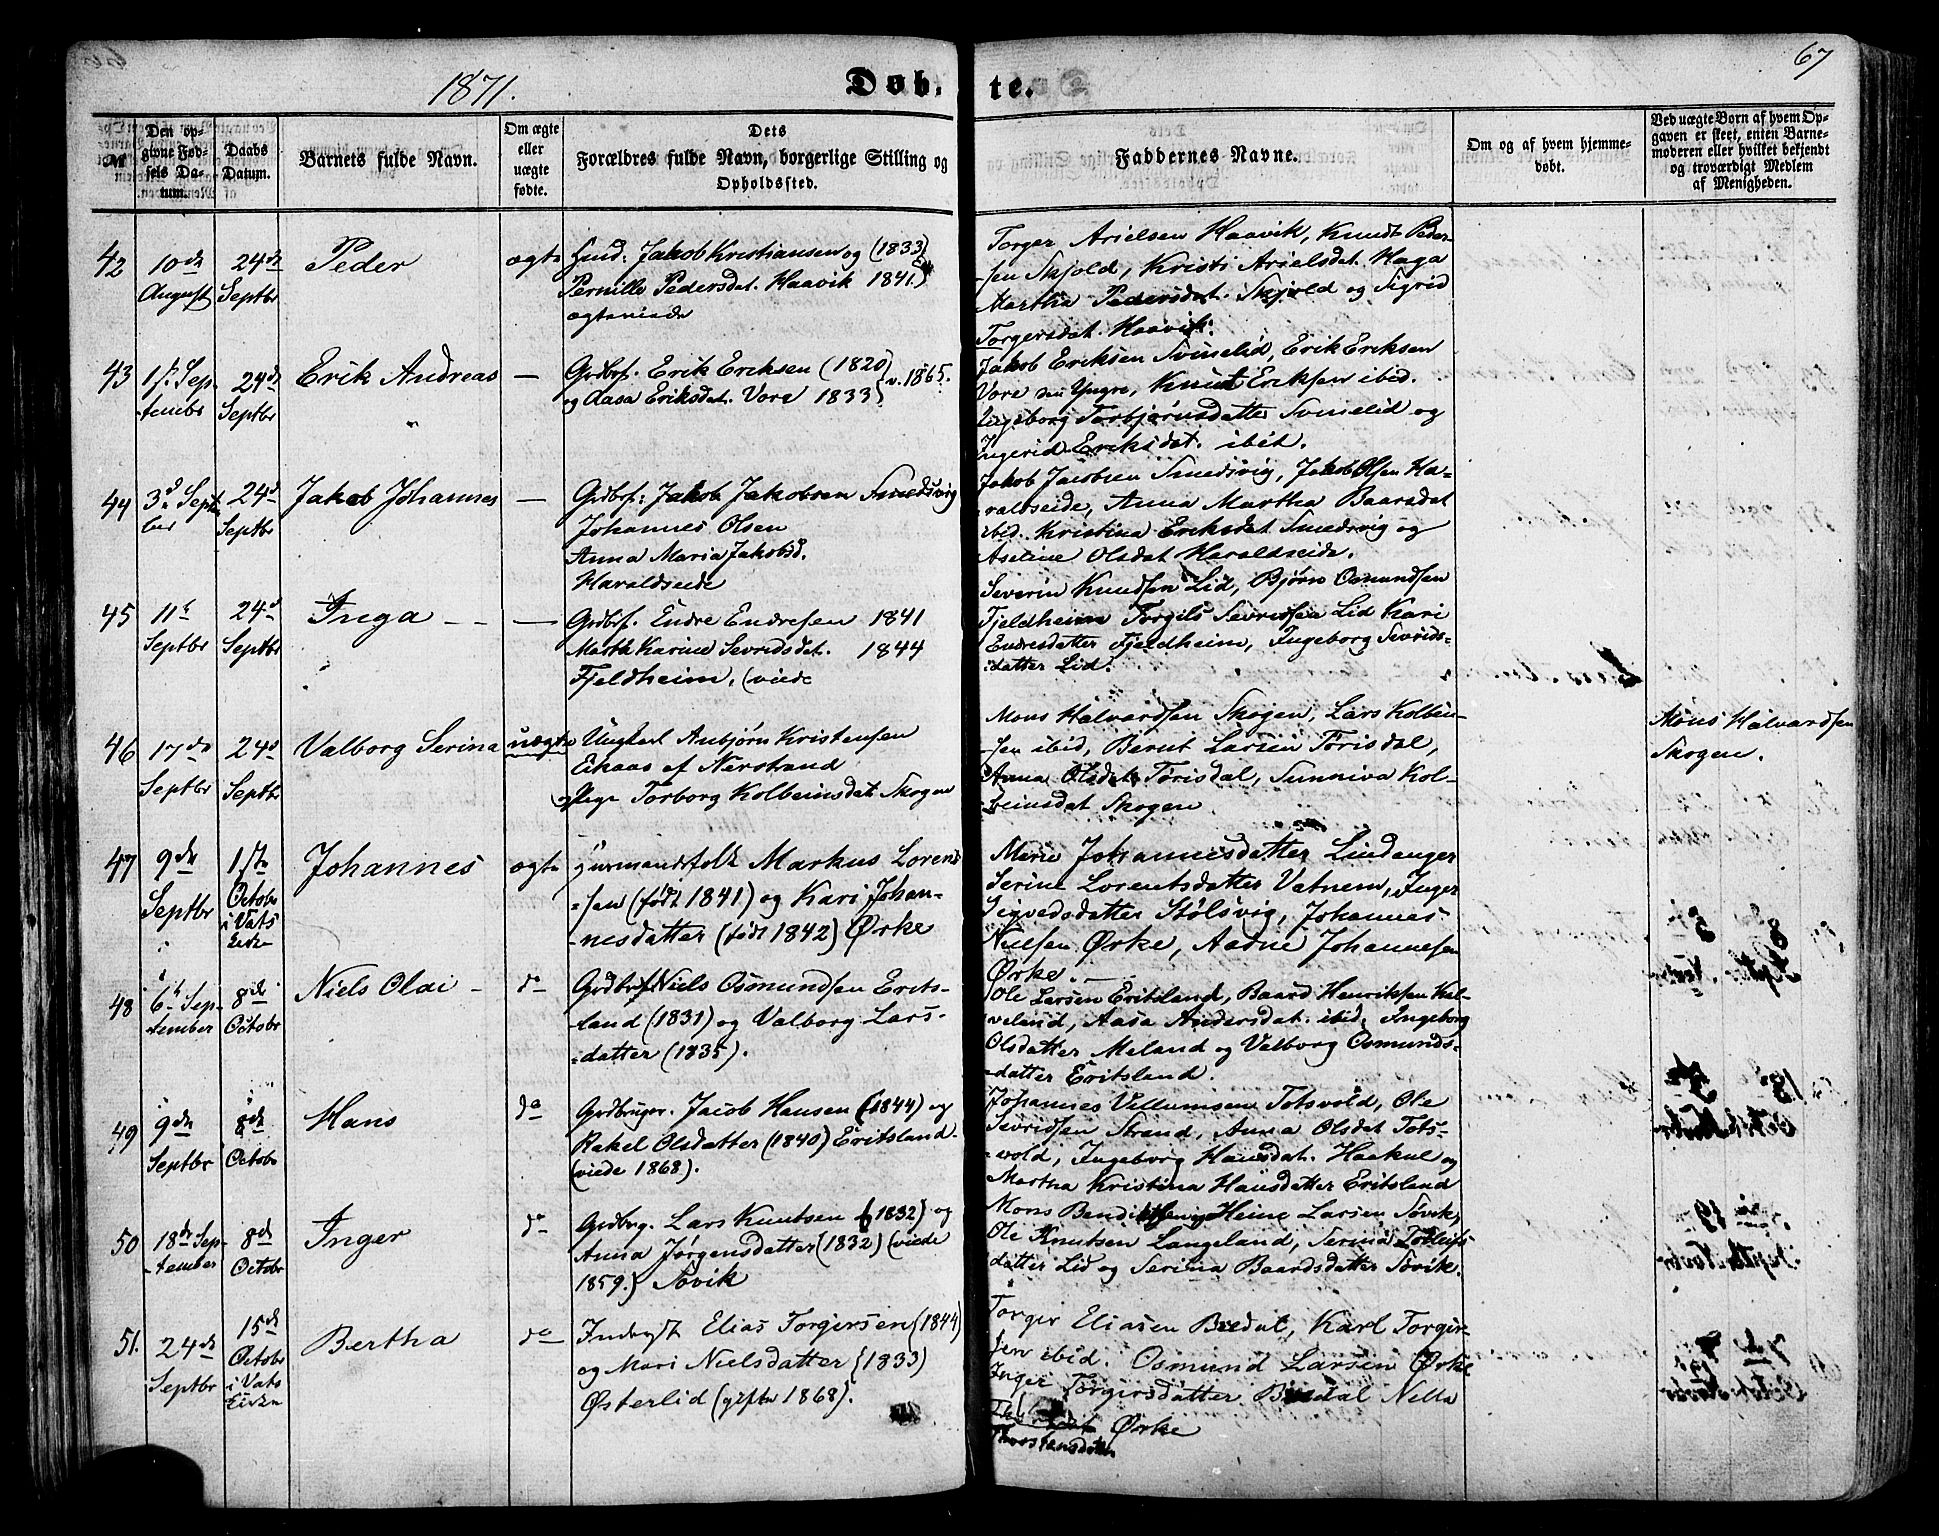 67
1871.
Døbte.
№
Den opgivne Fødsels Datum.
Daabs Datum.
Barnets fulde Navn.
Om ægte eller uægte fødte.
Dets Forældres fulde Navn, borgerlige Stilling og Opholdssted.
Faddernes Navne.
Om og af hvem hjemmedøbt.
Ved uægte Børn af hvem Opgaven er skeet, enten Barnemoderen eller hvilket bekjendt og troværdigt Medlem af Menigheden.
42
10de August
24de Septbr
Peder
ægte
Jakob Kristiansen og (1833)
Pernille Pedersdat. Haavik 1841.)
ægteviede
Torger Arielsen Haavik, Knudt Peder-
-sen Skjold, Kristi Arielsdat. Haga
Martha Pedersdat. Skjold og Sigrid
Torgersdat. Haavik.
43
1st. Sep-
-tembr
24de Septbr
Erik Andreas
—
Grdbr. Erik Eriksen (1820)
og Aasa Eriksdat. Vore 1833) v. 1865.
Jakob Eriksen Svinelid, Erik Eriksen
Vore den Yngre, Knut Eriksen ibid.
Ingeborg Torbjørnsdatter Svinelid og
Ingerid Eriksdat. ibid.
44
3d Septbr
24d Septbr
Jakob Johannes
—
Grdbr: Jakob Jakobsen Smedsvig
Johannes Olsen
Anna Maria Jakobsd.
Haraldseide
Jakob Jacobsen Smedsvig, Jakob Olsen Ha-
-raldseide, Anna Martha Baarsdat
ibid. Kristina Eriksdat Smedsvig og
Aseline Olsdat Haraldseide.
45
11te Septbr
24d Septbr
Inga
— —
Grdbr. Endre Endresen 1841
Marth Karine Sevridsdat. 1844
Fjeldheim, (viede
Severin Knudsen Lid, Bjørn Osmundsen
Fjeldheim Torgils Sevridsen Lid Kari
Endresdatter Fjeldheim, Ingeborg Sevrids-
-datter Lid.
46
17de Septbr
24d Septbr
Valborg Serina
uægte
Ungkarl Anbjørn Kristensen
Eikaas af Nerstrand
og Pige Torborg Kolbeinsdat Skogen
Mons Halvardsen Skogen, Lars Kolbein-
-sen ibid, Bernt Larsen Torisdal,
Anna Olsdat Torisdal, Sunniva Kol-
-beinsdat Skogen.
Mons Halvardsen
Skogen.
47
9de Septbr
1ste Octobr i Vats Kirke
Johannes
ægte
Huusmandsfolk Markus Lorent-
-sen (født 1841) og Kari Johan-
-nesdatter (født 1842) Ørke
Marie Johannesdatter Lindanger
Serine Lorentsdatter Vatnem, Inger
Sigvedsdatter Stølsvig, Johannes
Nielsen Ørke, Aadne Johannesen
Ørke.
48
6te Sep-
-tember
8de Octobr
Niels Olai
do
Grdbr. Niels Osmundsen Erits-
-land (1831) og Valborg Lars-
-datter (1835).
Ole Larsen Eritsland, Baard Henriksen Kal-
-veland, Aasa Andersdat. ibid. Ingeborg
Olsdatter Meland og Valborg Osmunds-
-datter Eritsland.
49
9de Septbr
8de Octobr
Hans
do
Grdbruger. Jacob Hansen (1844) og
Rakel Olsdatter (1840) Eritsland.
(viede 1868).
Johannes Villumsen Totsvold, Ole
Sevridsen Strand, Anna Olsdat Tots-
-vold, Ingeborg Hansdat. Haakul og
Martha Kristina Hansdatter Eritsland
50
18de Sep-
-tember
8de Octobr
Inger
do
Grdbrg. Lars Knutsen (1832) og
Anna Jørgensdatter (1832) (viede
1859.) Søvik
Heine Larsen Søvik,
Ole Knutsen Langeland, Serina
datter Lid og Serina Baardsdatter Søvik.
51.
24de Septbr
15de Octobr i Vats Kirke
Bertha
do
Inderst Elias Torgersen (1844)
og Mari Nielsdatter (1833)
Østerlid (gifte 1868).
Torger Eliasen Bredal, Karl Torger-
-sen ibid. Osmund Larsen Ørke
Inger Torgersdatter Bredal Nella
Ørke
Thorstensdatter